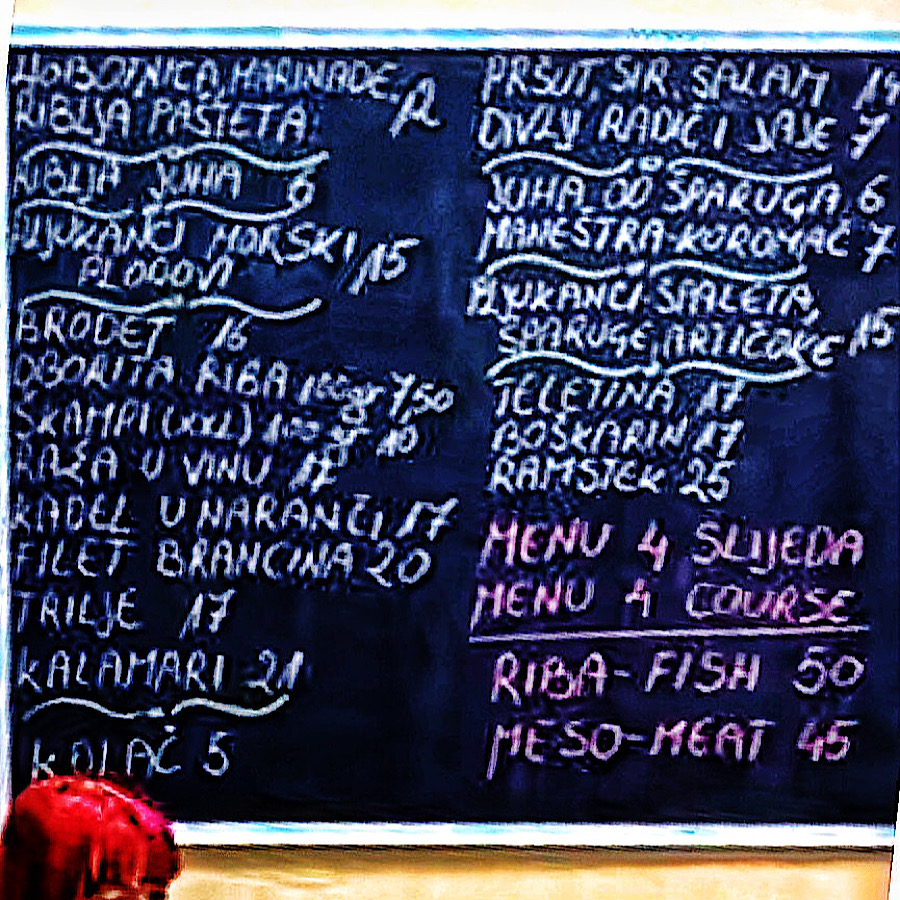 HOBOTNICA, MARINADE,
RIBLJA PAŠTETA 12
RIBLJA JUHA 6
PLJUKANCI MORSKI
PLODOVI 15
BRODET 16
OBORITA RIBA 100gr 7,50
ŠKAMPI (XXL) 100 gr 10
RAŽA U VINU 17
KADEL U NARANČI 17
FILET BRANCINA 20
TRILJE 17
KALAMARI 21
KOLAČ 5
PRŠUT, SIR, ŠALAM 14
DIVLJ RADIČ I JAJE 7
JUHA OD ŠPARUGA 6
MANEŠTRA-KOROMAČ 7
PLJUKANCI-ŠPALETA,
ŠPARUGE, ARTIČOKE 15
TELETINA 17
BOŠKARIN 17
RAMSTEK 25
MENU 4 SLIJEDA
MENU 4 COURSE
RIBA-FISH 50
MESO-MEAT 45